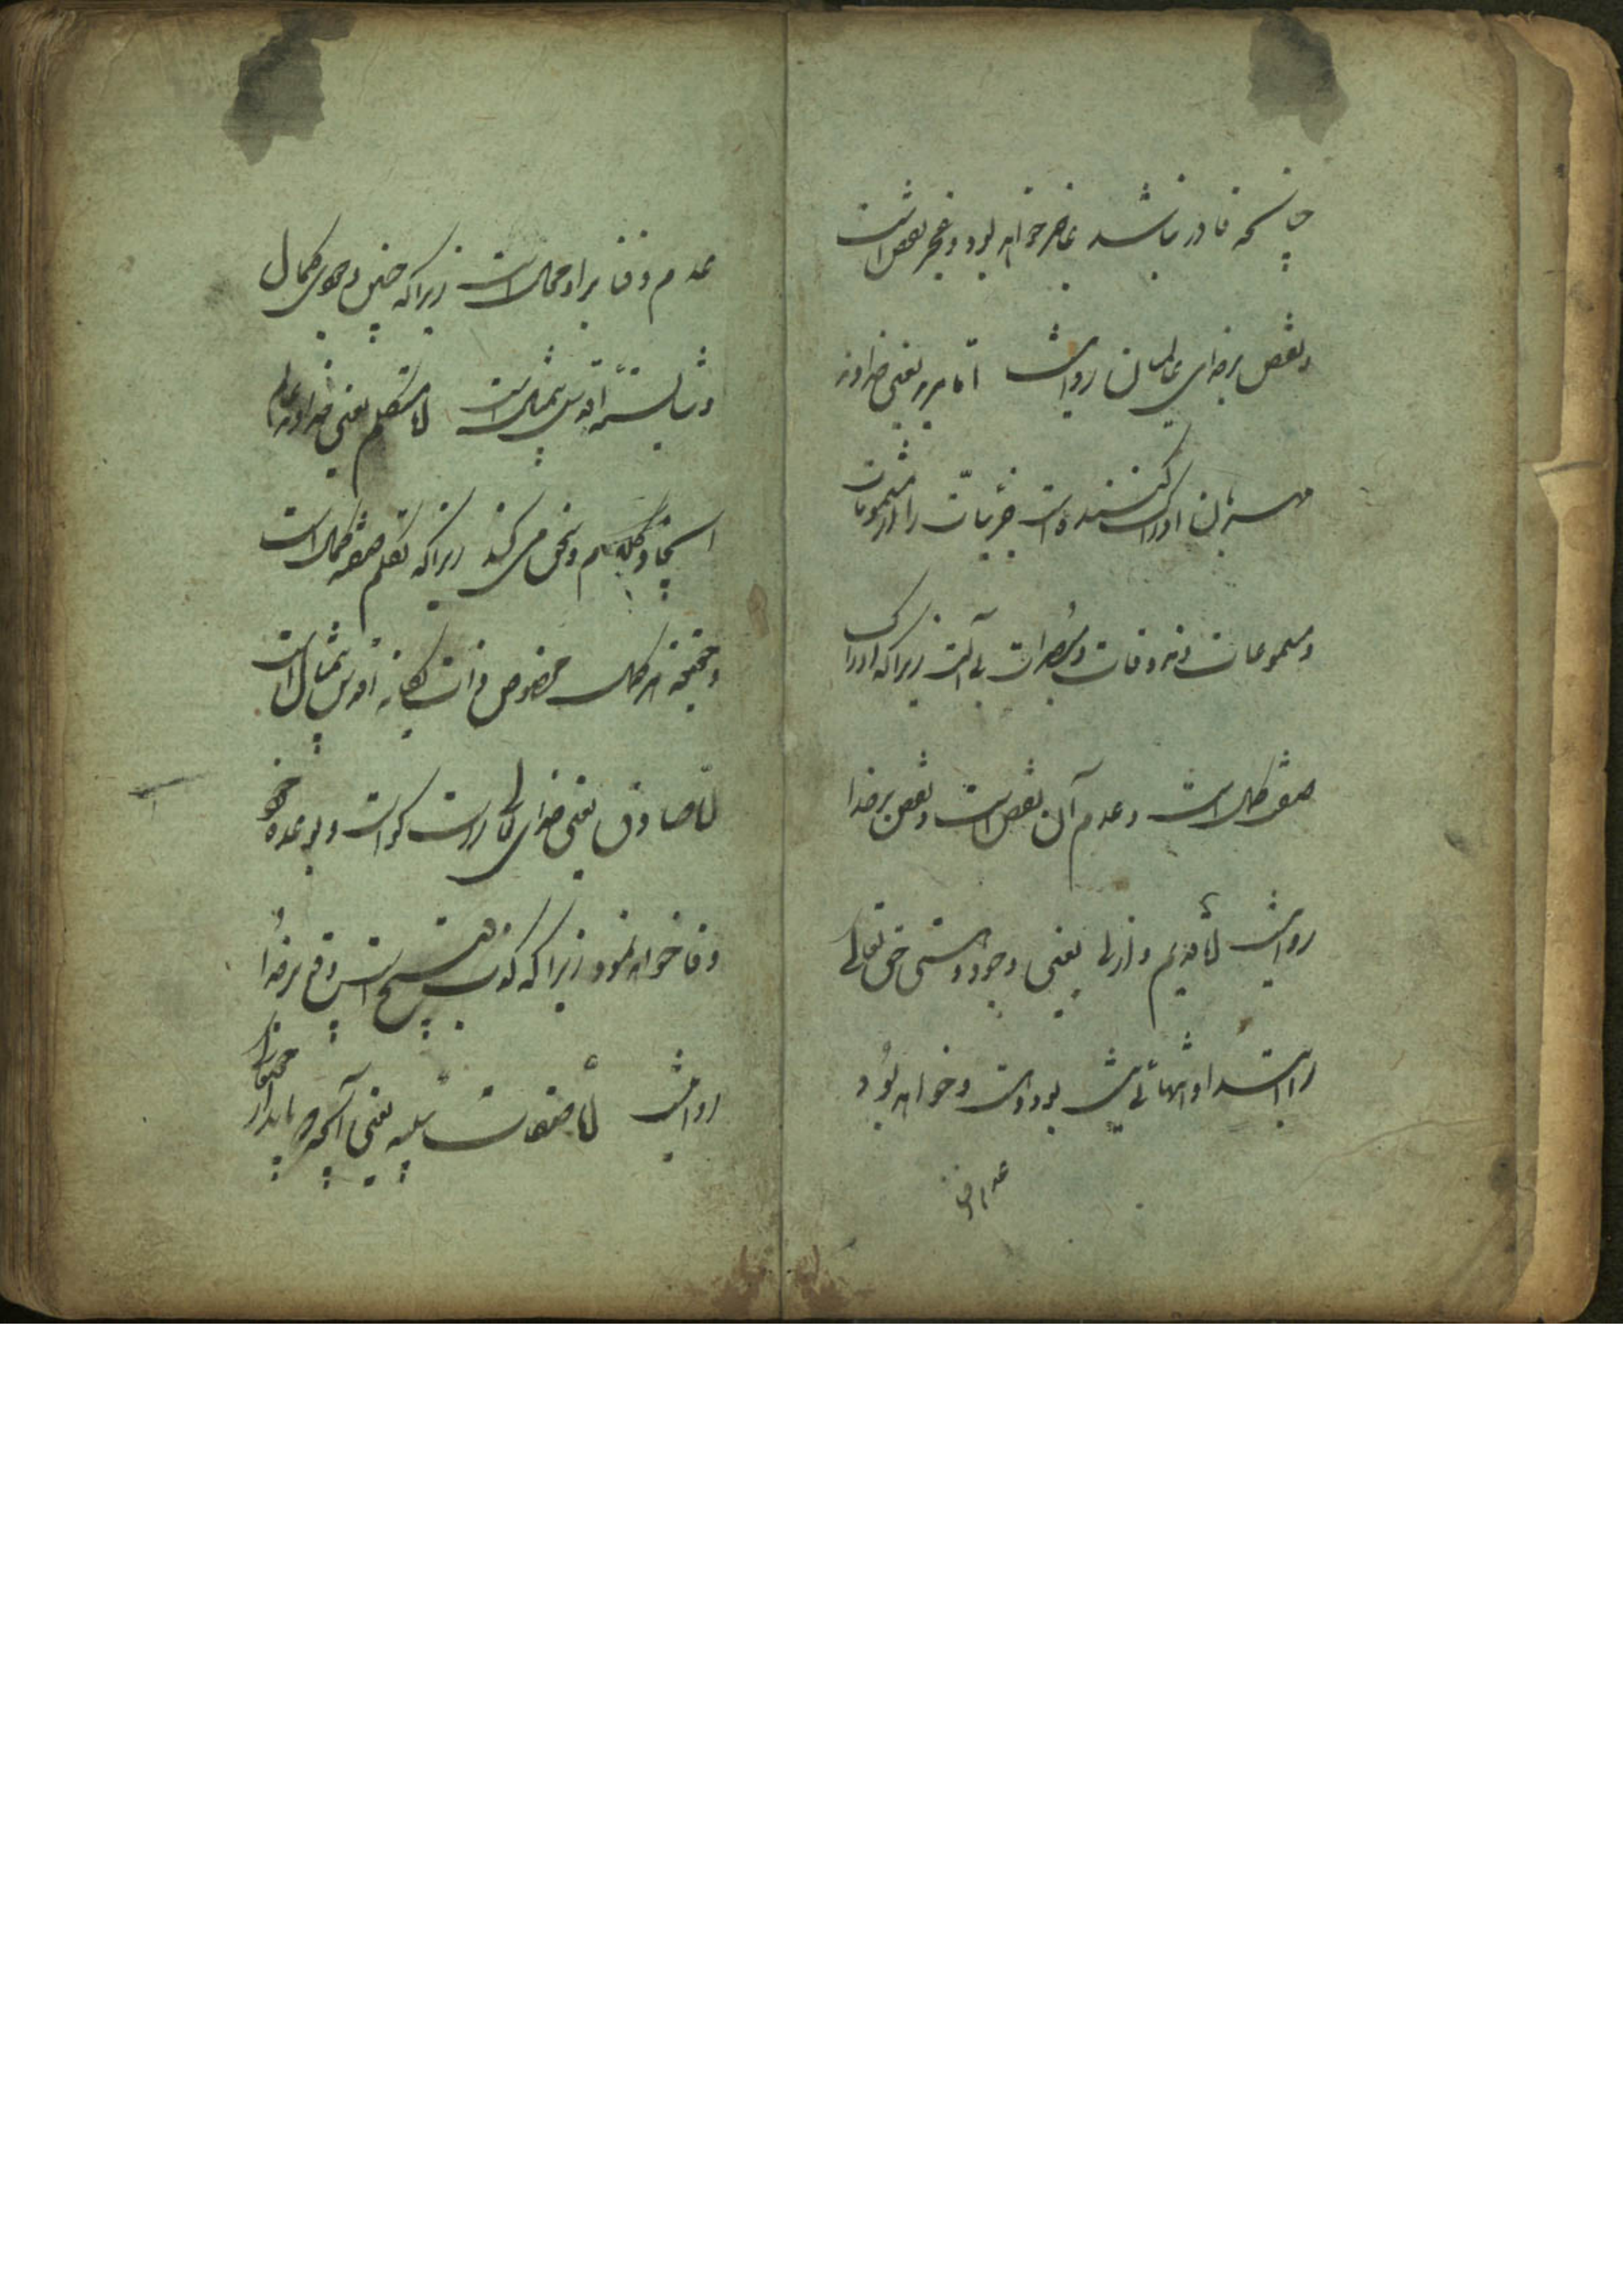 چنانچه قادر نباشد عاجز خواهد بود و عجز نقص است
و نقص بر خدای عالمیان روا نیست اما مرید یعنی خداوند
مهربان ادراک کننده است جزئیات را از مشمومات
و مسموعات و مذوقات و مبصرات بی آلت زیرا که ادراک
صفة کمال است و عدم آن نقص است و نقص بر خدا
روا نیست امّا قدیم و ازلی یعنی وجود و هستی حق تعالی
را ابتدا و انتهائی نیست بوده است و خواهد بود
عدم و فنا
عدم و فنا بر او محال است زیرا که چنین وجودی کمال
و شایسته اقدس بیمثال است امّا متکلم یعنی خداوند عالم
ایجاد کلام و سخن می کند زیرا که تکلم صفة کمال است
و حقیقة هر کمال مخصوص ذات یگانه اقدس بیمثال است
امّا صادق یعنی خدای تعالی راست گو است و بوعده خود
وفا خواهد نمود زیرا که کذب قبیح است و قبح بر خدا
روا نیست امّا صفات سلبیه یعنی آنچه نباید